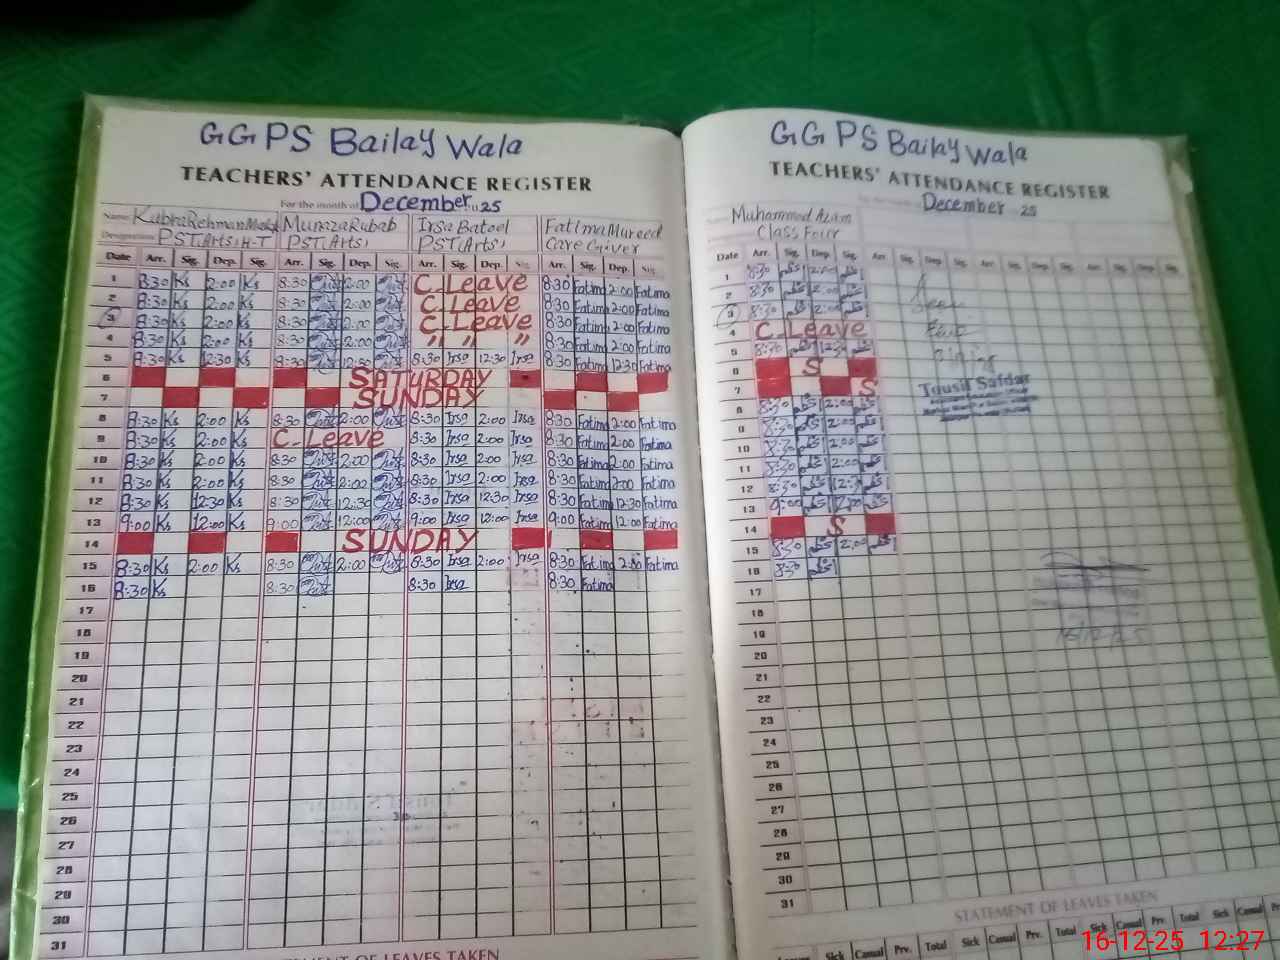 GGPS Bailay Wala
TEACHERS' ATTENDANCE REGISTER
For the month of December 25
Name: Kubra Rehman Mumza Rubab Irsa Batool Fatima Mureed
Designation PST(Arts) H-T PST(Arts) PST(Arts) Care Giver
Date Arr. Sig. Dep. Sig. Arr. Sig. Dep. Sig. Arr. Sig. Dep. Sig. Arr. Sig. Dep. Sig.
1 8:30 Ks 2:00 Ks 8:30 2:00 C-Leave 8:30 Fatima 2:00 Fatima
2 8:30 Ks 2:00 Ks 8:30 2:00 C-Leave 8:30 Fatima 2:00 Fatima
3 8:30 Ks 2:00 Ks 8:30 2:00 C-Leave 8:30 Fatima 2:00 Fatima
4 8:30 Ks 2:00 Ks 8:30 2:00 " " " 8:30 Fatima 2:00 Fatima
5 8:30 Ks 12:30 Ks 8:30 12:30 8:30 Irsa 12:30 Irsa 8:30 Fatima 12:30 Fatima
6 SATURDAY
7 SUNDAY
8 8:30 Ks 2:00 Ks 8:30 2:00 8:30 Irsa 2:00 Irsa 8:30 Fatima 2:00 Fatima
9 8:30 Ks 2:00 Ks C-Leave 8:30 Irsa 2:00 Irsa 8:30 Fatima 2:00 Fatima
10 8:30 Ks 2:00 Ks 8:30 2:00 8:30 Irsa 2:00 Irsa 8:30 Fatima 2:00 Fatima
11 8:30 Ks 2:00 Ks 8:30 2:00 8:30 Irsa 2:00 Irsa 8:30 Fatima 2:00 Fatima
12 8:30 Ks 12:30 Ks 8:30 12:30 8:30 Irsa 12:30 Irsa 8:30 Fatima 12:30 Fatima
13 9:00 Ks 12:00 Ks 9:00 12:00 9:00 Irsa 12:00 Irsa 9:00 Fatima 12:00 Fatima
14 SUNDAY
15 8:30 Ks 2:00 Ks 8:30 2:00 8:30 Irsa 2:00 Irsa 8:30 Fatima Fatima
16 8:30 Ks 8:30 8:30 Irsa 8:30 Fatima
17
18
19
20
21
22
23
24
25
26
27
28
29
30
31
STATEMENT OF LEAVES TAKEN
GGPS Bailay Wala
TEACHERS' ATTENDANCE REGISTER
For the month of December 25
Name Muhammad Azam
Class Four
Date Arr. Sig. Dep. Sig. Arr. Sig. Dep. Sig. Arr. Sig. Dep. Sig. Arr. Sig. Dep. Sig.
1 8:30 2:00
2 8:30 2:00
3 8:30 2:00
4 C-Leave
5 8:30
6 S
7 S
8 8:30 2:00
9 8:30 2:00
10 8:30 2:00
11 8:30 2:00
12 8:30
13 9:00 12:00
14 S
15 8:30 2:00
16 8:30
17
18
19
20
21
22
23
24
25
26
27
28
29
30
31
Tousif Safdar
STATEMENT OF LEAVES TAKEN
Sick Casual Prv. Total Sick Casual Prv. Total Sick Casual Prv. Total Sick Casual
16-12-25 12:27